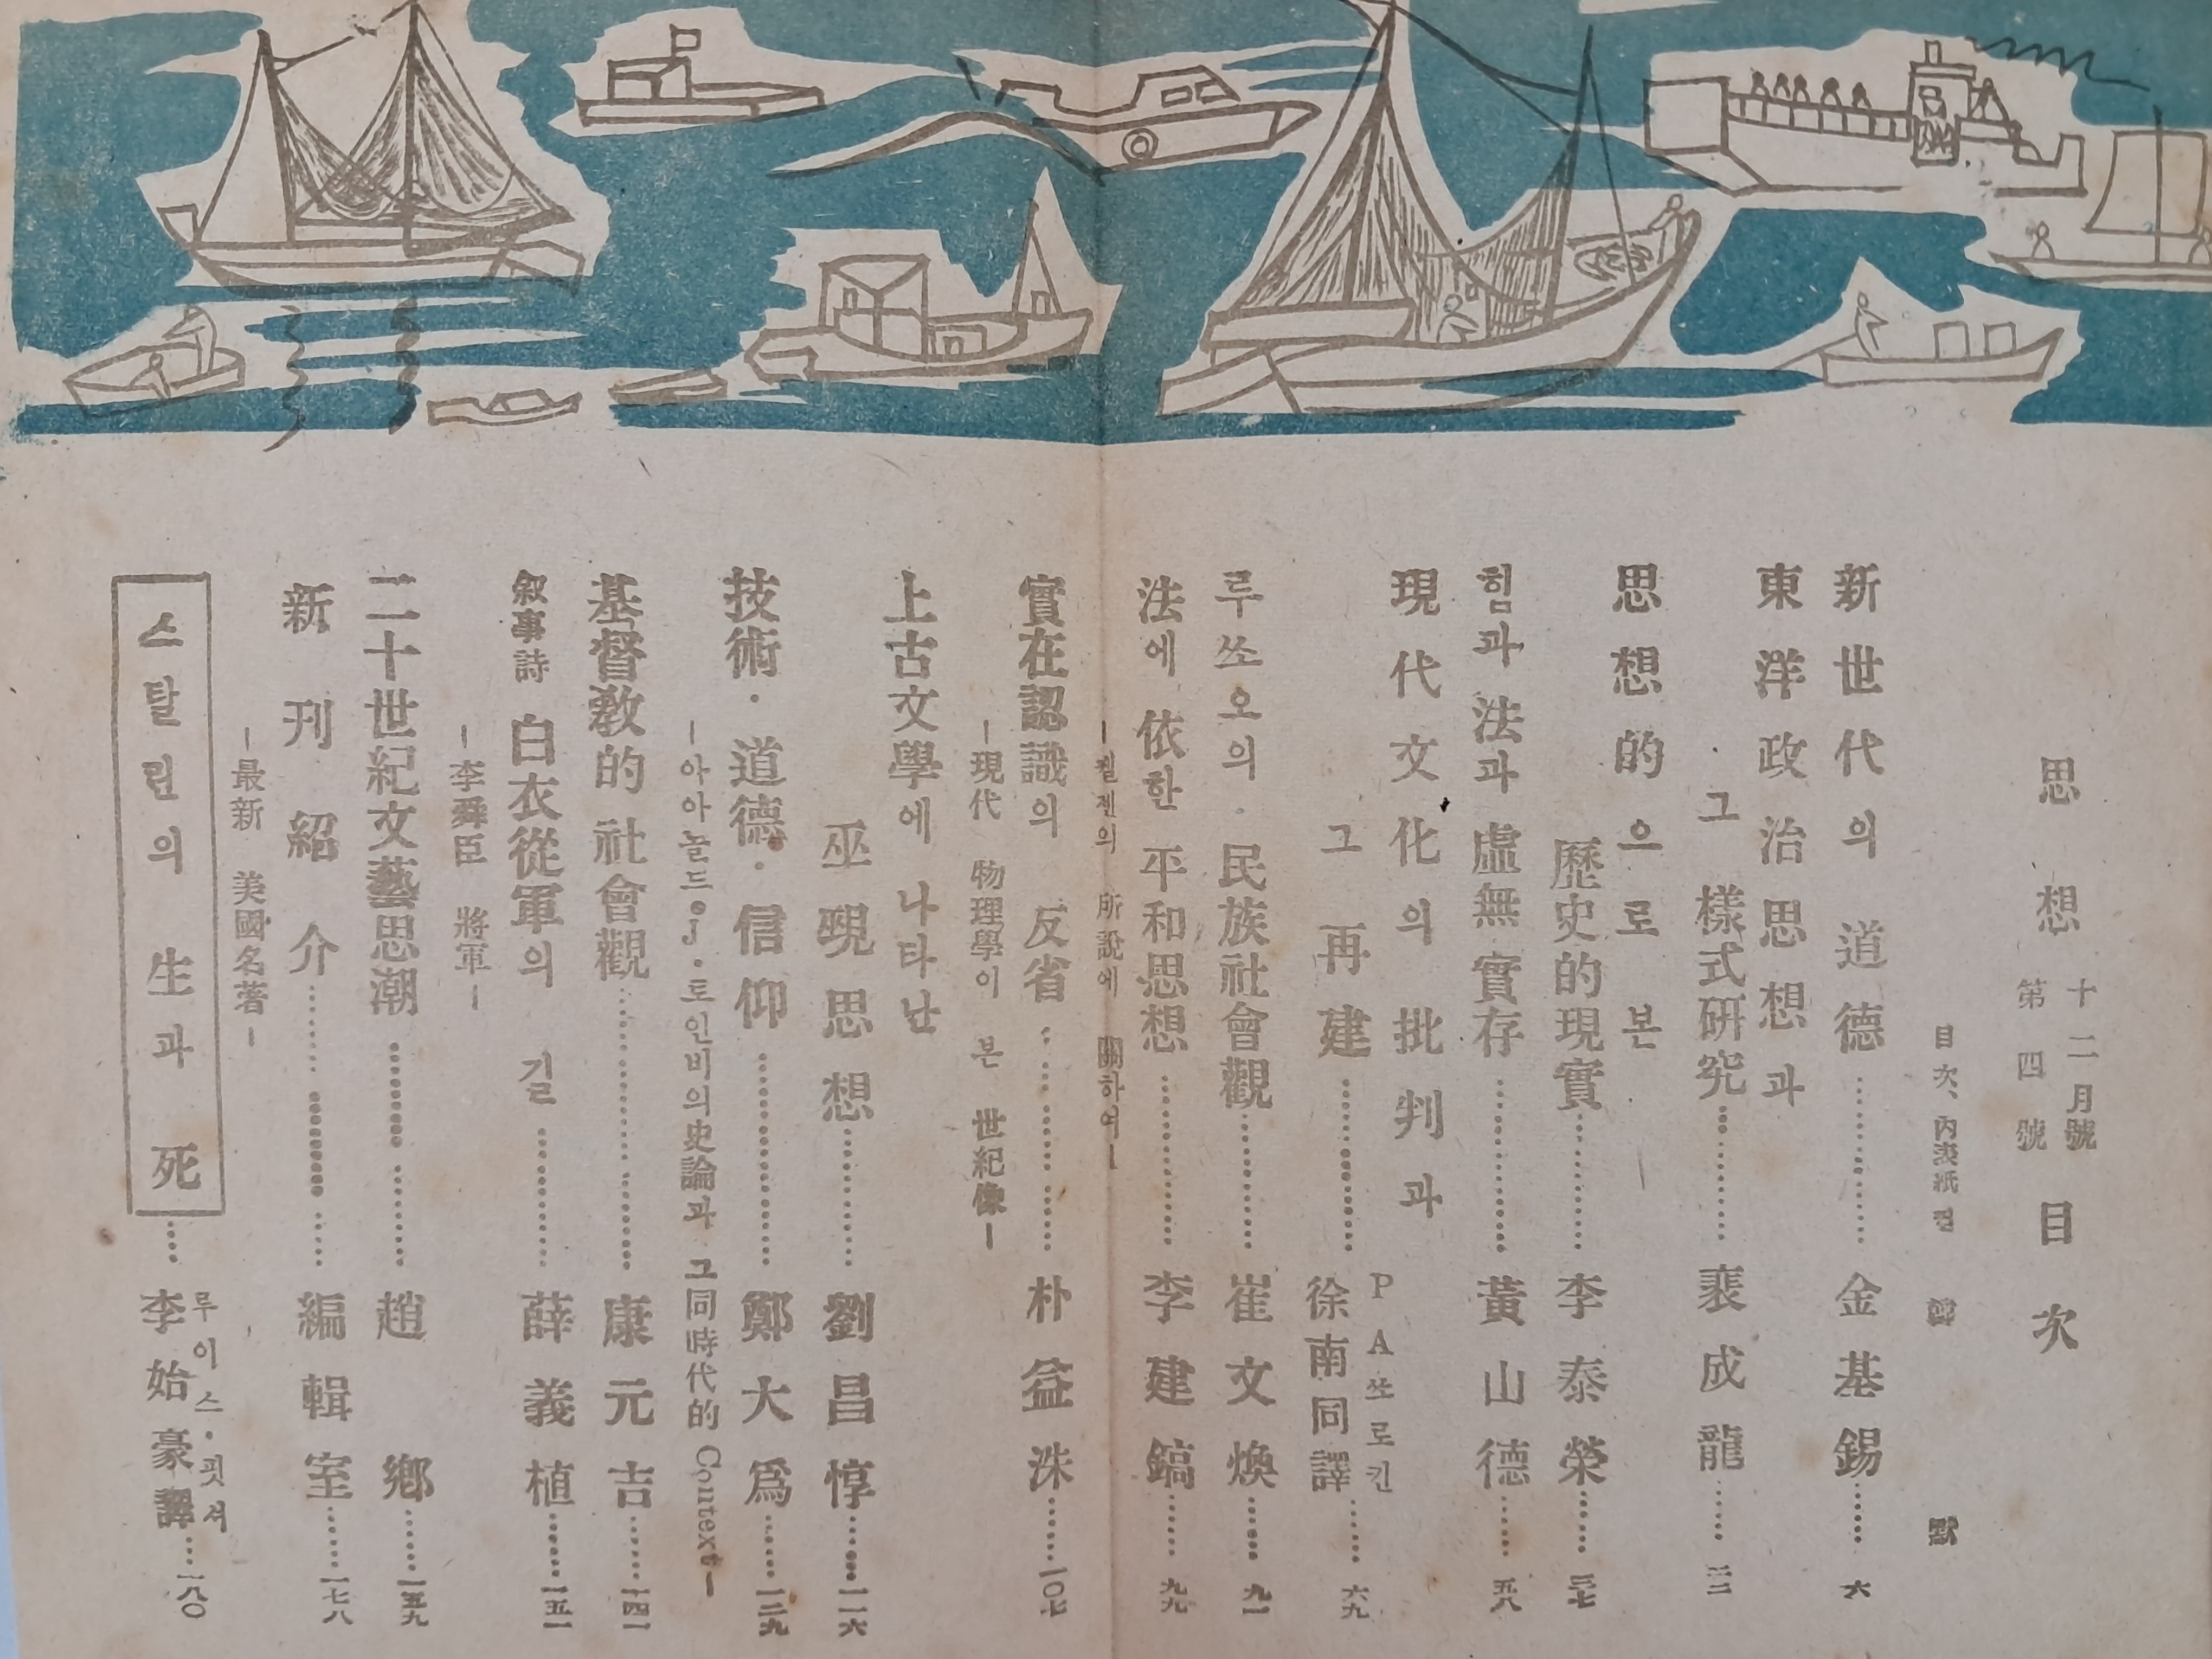 思想
十二月號
第四號
目次
目次、內表紙 컽 韓 默
新世代의 道德 ………… 金基錫 …… 六
東洋政治思想과
그 樣式硏究 ………… 裵成龍 …… 二二
思想的으로 본
歷史的現實 ………… 李泰榮 …… 三七
힘과 法과 虛無 實存 ………… 黃山德 …… 五八
現代文化의 批判과
그 再建 ………… P A 쏘로킨
徐南同譯 …… 六九
루쏘오의 民族社會觀 ………… 崔文煥 …… 九一
法에 依한 平和思想 ………… 李建鎬 …… 九九
―켈젠의 所說에 關하여―
實在認識의 反省 ………… 朴益洙 …… 一〇七
―現代 物理學이 본 世紀像―
上古文學에 나타난
巫覡思想 ………… 劉昌惇 …… 一一六
技術·道德·信仰 ………… 鄭大爲 …… 一二九
―아아놀드·J·토인비의史論과 그同時代的 Context―
基督敎的 社會觀 ………… 康元吉 …… 一四一
敍事詩 白衣從軍의 길 ………… 薛義植 …… 一五一
―李舜臣 將軍―
二十世紀文藝思潮 ………… 趙鄕 …… 一五九
新刊紹介 ………… 編輯室 …… 一七八
―最新 美國名著―
스탈린의 生과 死 …… 루이스·핏셔
李始豪譯 …… 一八〇